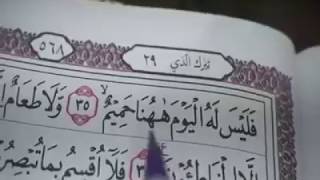 تبرك الذي ٢٩ ٥٦٨
فَلَيْسَ لَهُ الْيَوْمَ هٰهُنَا حَمِيْمٌ ۙ ٣٥ وَلَا طَعَامٌ
فَلَا اُقْسِمُ بِمَا تُبْصِرُ